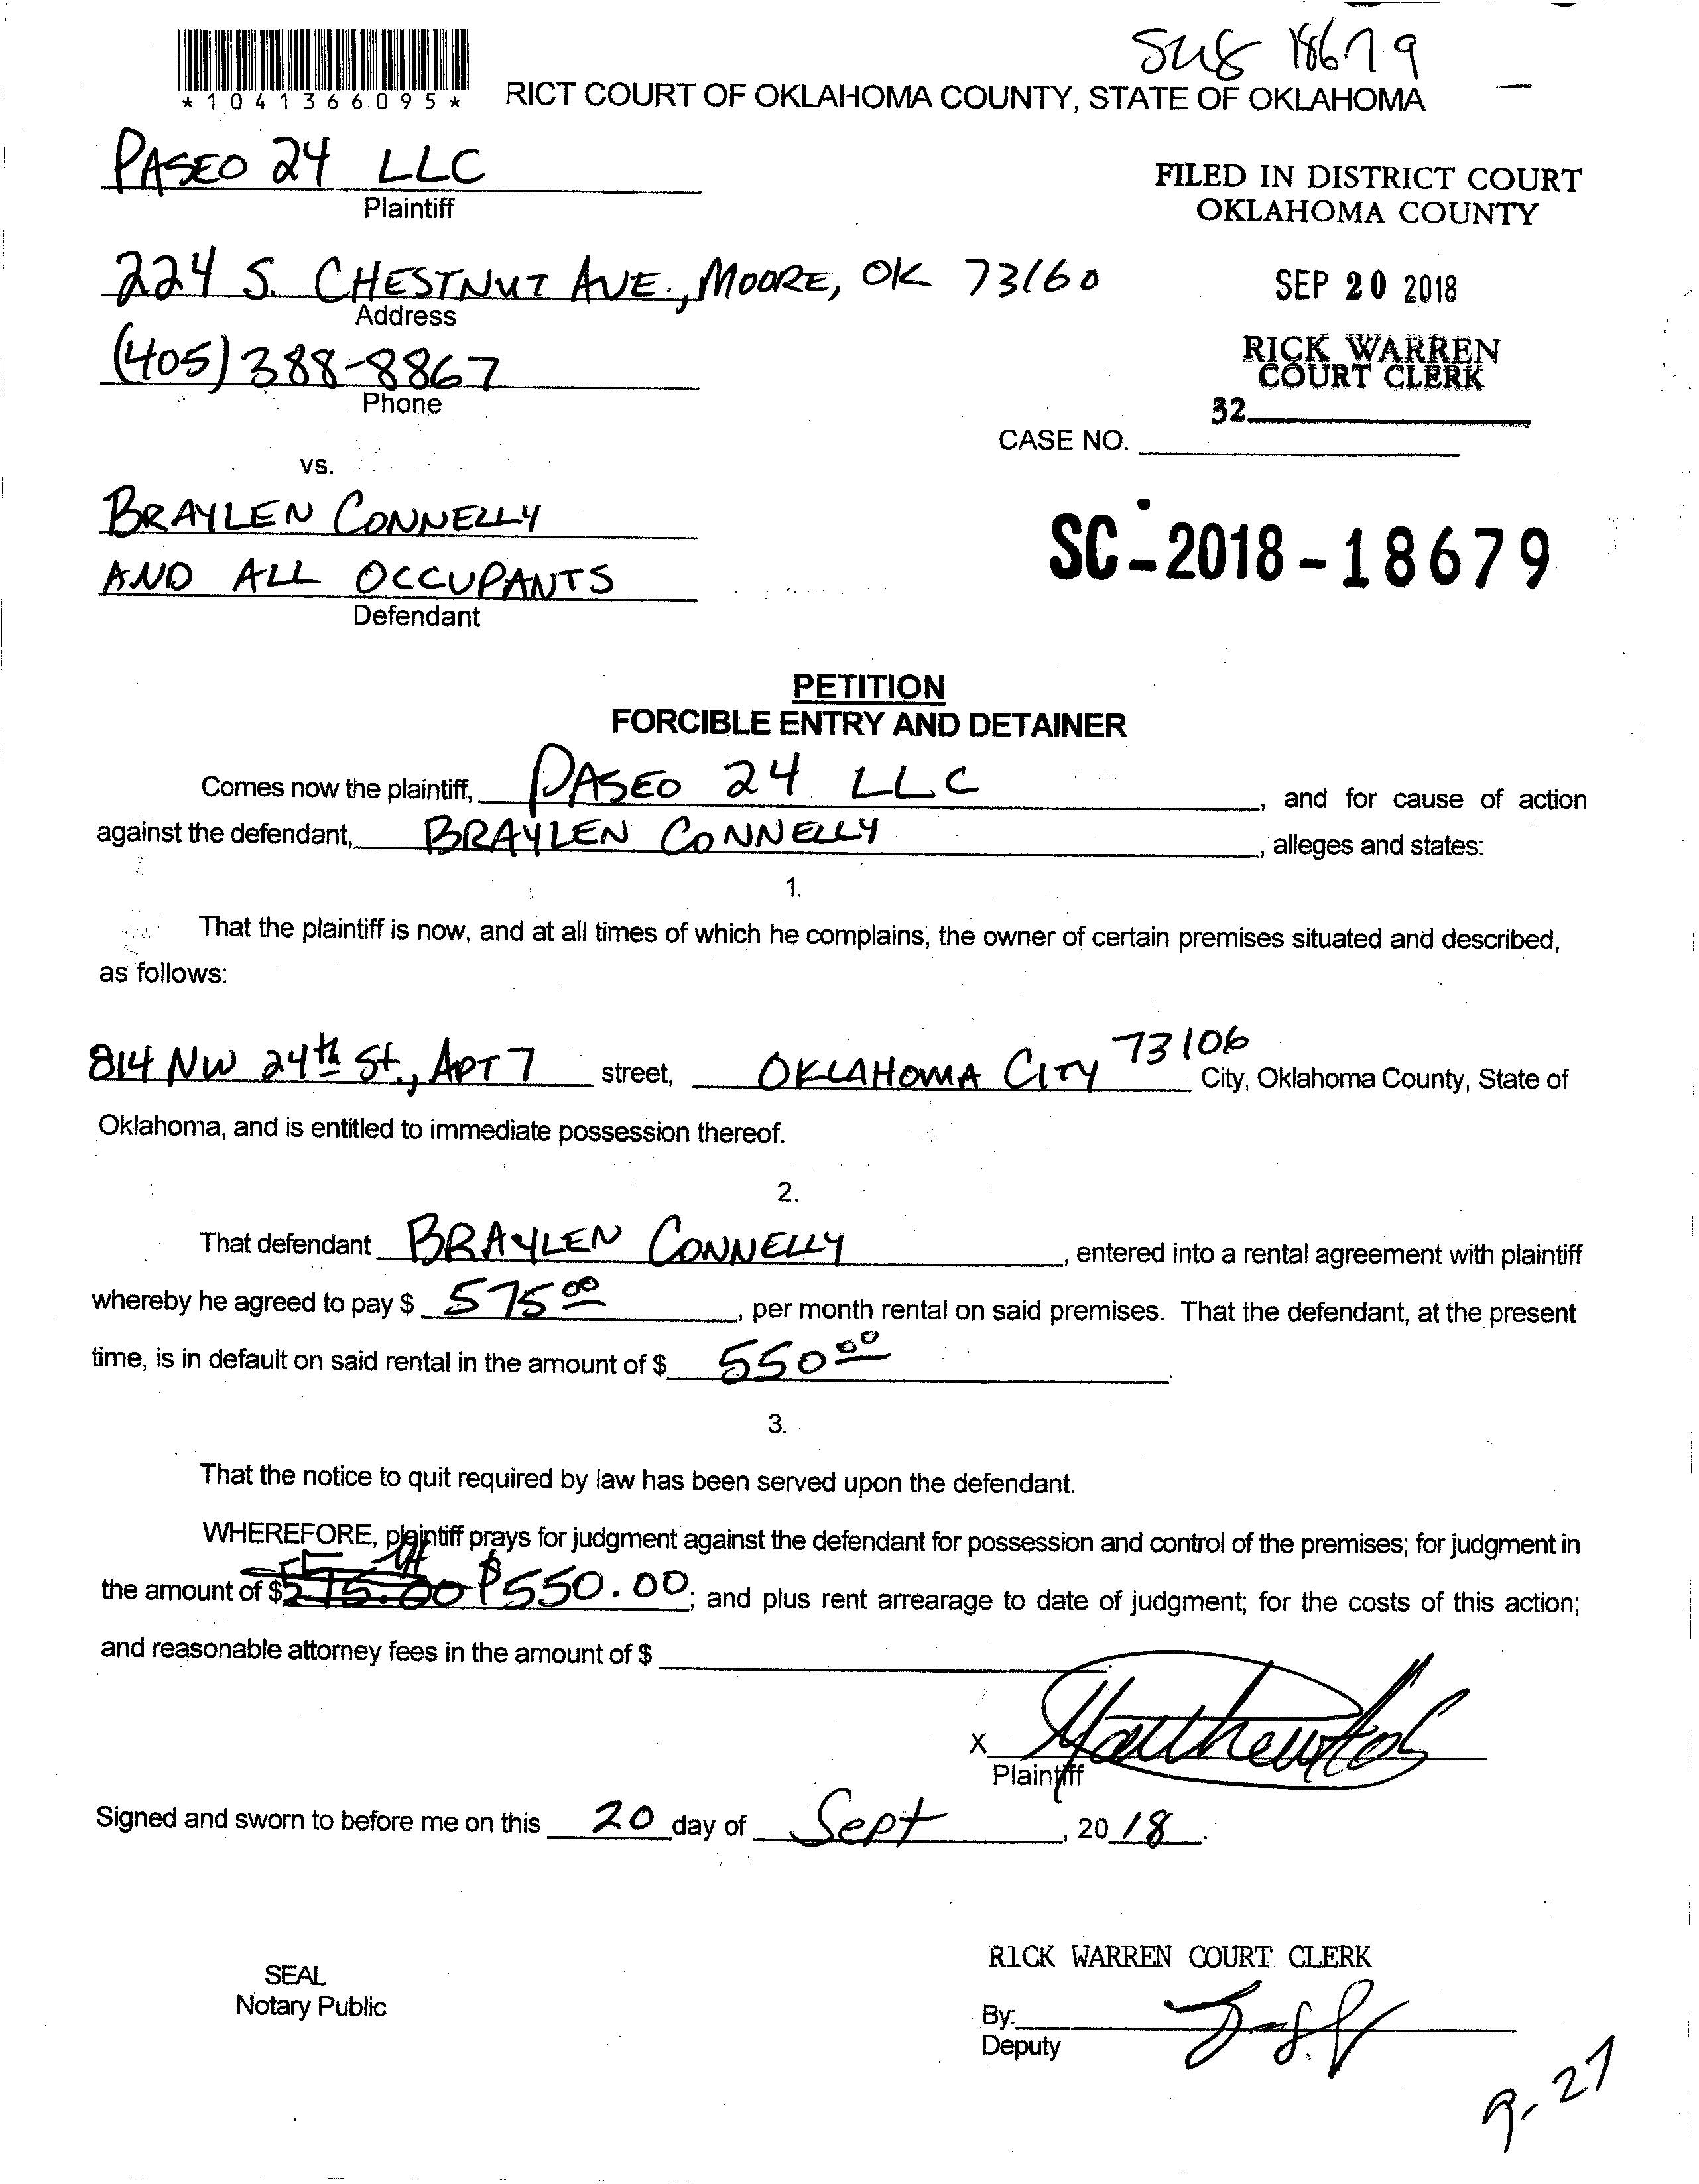 SUS 18679
*1041366095*
RICT COURT OF OKLAHOMA COUNTY, STATE OF OKLAHOMA
PASEO 24 LLC
Plaintiff
FILED IN DISTRICT COURT
OKLAHOMA COUNTY
224 S. CHESTNUT AVE., MOORE, OK 73160
Address
SEP 20 2018
(405) 388-8867
Phone
RICK WARREN
COURT CLERK
32
CASE NO.
vs.
BRAYLEN CONNELLY
AND ALL OCCUPANTS
Defendant
SC-2018-18679
PETITION
FORCIBLE ENTRY AND DETAINER
Comes now the plaintiff, PASEO 24 LLC, and for cause of action
against the defendant, BRAYLEN CONNELLY, alleges and states:
1.
That the plaintiff is now, and at all times of which he complains, the owner of certain premises situated and described,
as follows:
814 NW 24th St., APT 7 street, OKLAHOMA CITY 73106 City, Oklahoma County, State of
Oklahoma, and is entitled to immediate possession thereof.
2.
That defendant BRAYLEN CONNELLY, entered into a rental agreement with plaintiff
whereby he agreed to pay $ 575 00, per month rental on said premises. That the defendant, at the present
time, is in default on said rental in the amount of $ 550 00.
3.
That the notice to quit required by law has been served upon the defendant.
WHEREFORE, plaintiff prays for judgment against the defendant for possession and control of the premises; for judgment in
the amount of $ $550.00; and plus rent arrearage to date of judgment; for the costs of this action;
and reasonable attorney fees in the amount of $
X
Plaintiff
Signed and sworn to before me on this 20 day of Sept, 20 18.
SEAL
Notary Public
RICK WARREN COURT CLERK
By:
Deputy
9-27